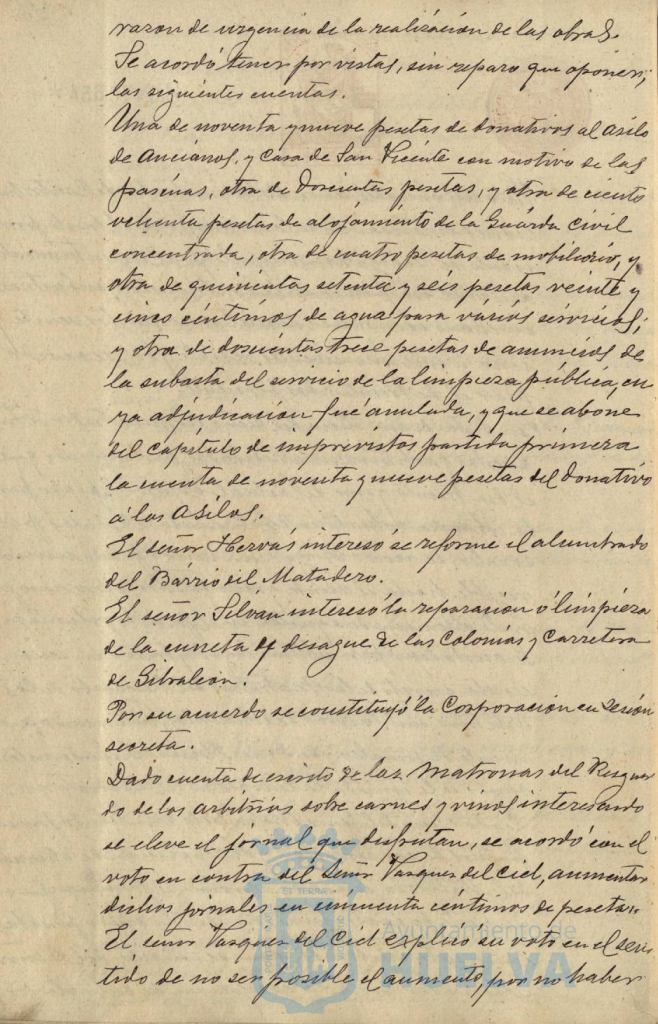 razon de urgencia de la realización de las obras.
Se acordó tener por vistas, sin reparo que oponer,
las siguientes cuentas.
Una de noventa y nueve pesetas de donativos al Asilo
de Ancianos, y Casa de San Vicente con motivo de las
pascuas, otra de Doscientas pesetas, y otra de ciento
ochenta pesetas de alojamiento de la Guardia Civil
concentrada, otra de cuatro pesetas de mobiliario, y
otra de quinientas setenta y seis pesetas veinte y
cinco céntimos de agua para varios servicios;
y otra de doscientas trece pesetas de anuncios de
la subasta del servicio de la limpieza pública, cu
ya adjudicación fué anulada, y que se abone
del capítulo de imprevistos partida primera
la cuenta de noventa y nueve pesetas del Donativo
á los Asilos.
El señor Hervás interesó se reforme el alumbrado
del Bárrio del Matadero.
El señor Silván interesó la reparación ó limpieza
de la cuneta y desague de las Colonias y Carretera
de Gibraleon.
Por su acuerdo se constituyó la Corporación en Sesión
secreta.
Dado cuenta de escrito de las Matronas del Resguar
do de los arbitrios sobre carnes y vinos interesando
se eleve el jornal que disfrutan, se acordó con el
voto en contra del Señor Vasques del Ciel, aumentar
dichos jornales en cincuenta céntimos de peseta.
El señor Vasques del Ciel explicó su voto en el sen
tido de no ser posible el aumento, por no haber
Ayuntamiento de
HUELVA